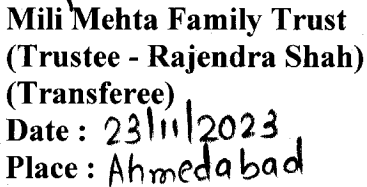 Mili Mehta Family Trust
(Trustee - Rajendra Shah)
(Transferee)
Date : 23/11/2023
Place : Ahmedabad